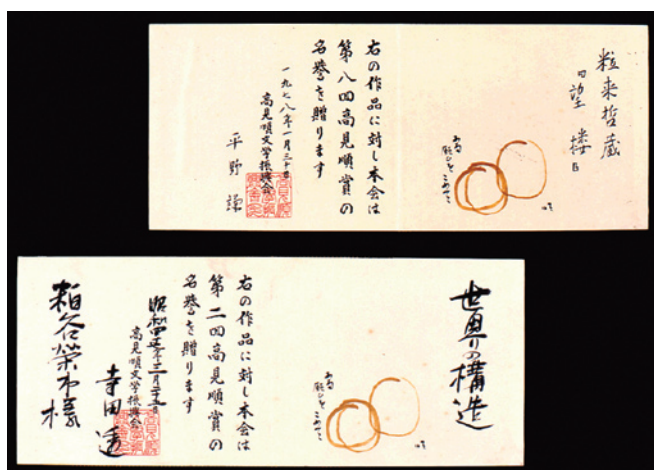 粒来哲蔵
望楼
右の作品に対し本会は
第八回高見順賞の
名誉を贈ります
一九七八年一月三十日
高見順文学振興会
平野謙
世界の構造
右の作品に対し本会は
第二回高見順賞の
名誉を贈ります
高見順文学振興会
寺田透
粕谷榮市様